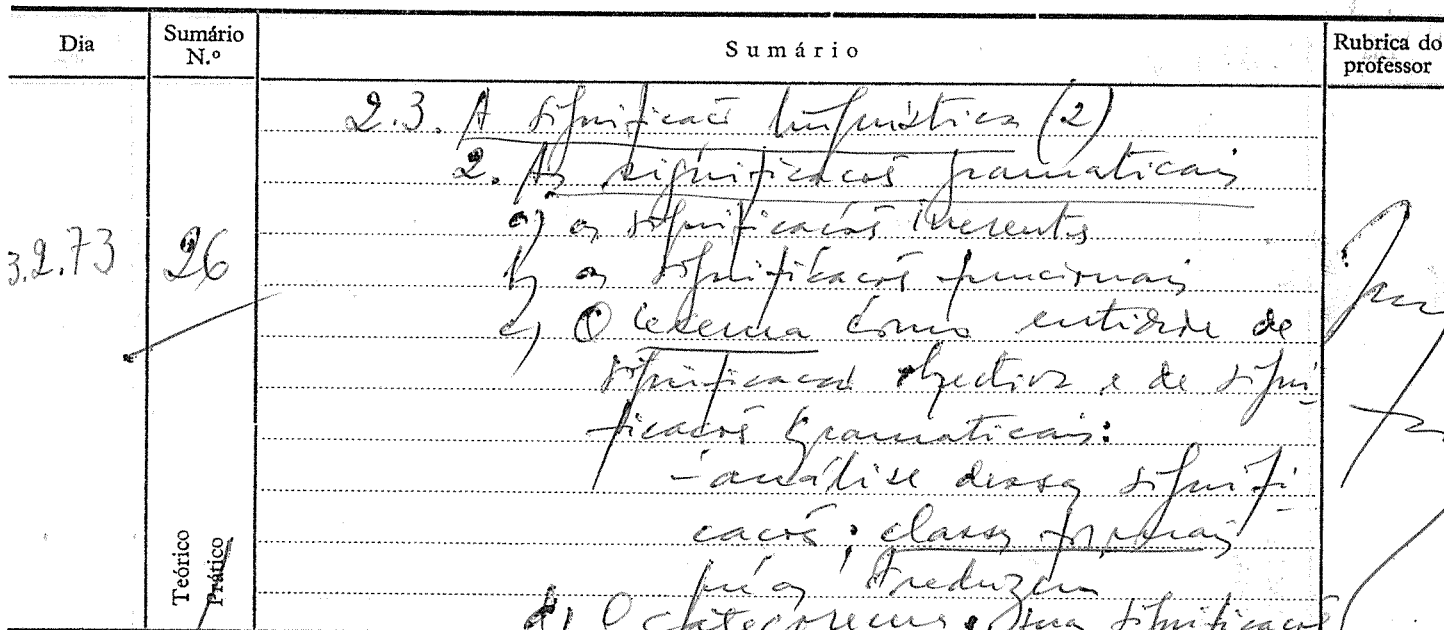 Dia
Sumário N.º
Sumário
Rubrica do professor
2.3. A significação linguística (2)
2. As significações gramaticais
a) as significações inerentes
b) as significações funcionais
3.2.73
26
c) O lexema como entidade de
significação objectiva e de signi-
ficações gramaticais:
- análise dessas signifi-
cações; classes formais
que as traduzem
Teórico
Prático
d) O categorema: sua significação